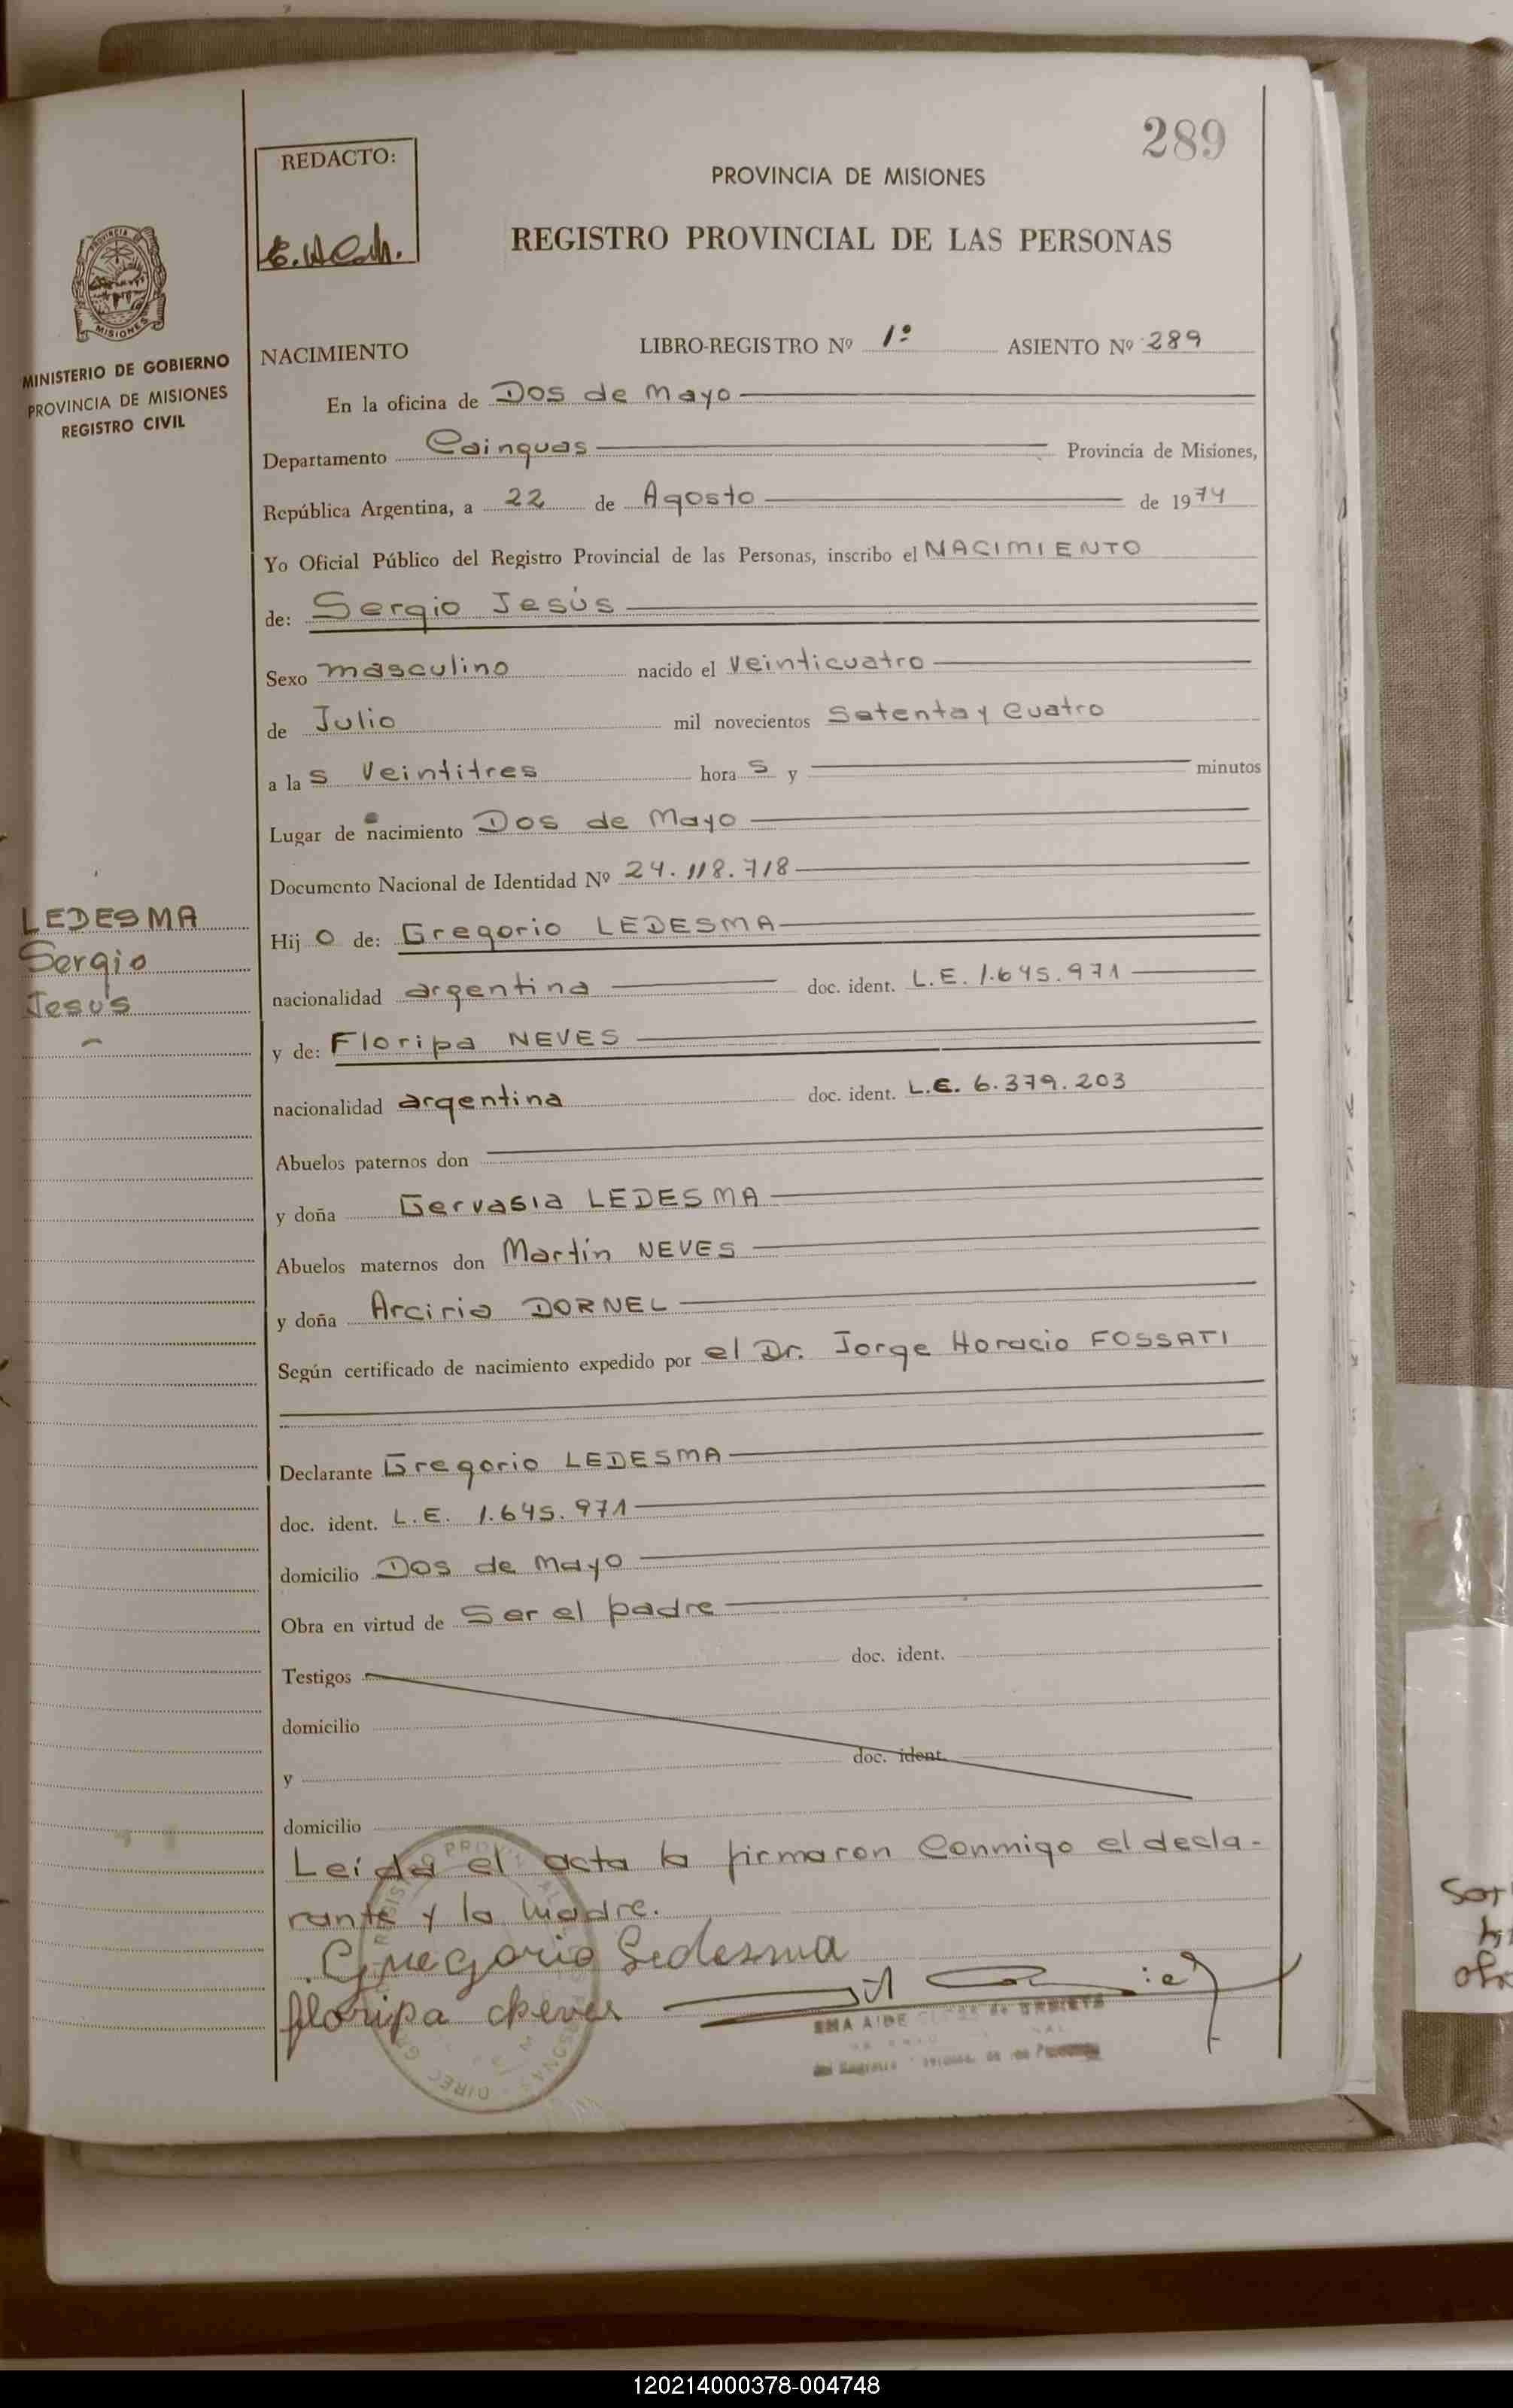 289
REDACTO:
PROVINCIA DE MISIONES
REGISTRO PROVINCIAL DE LAS PERSONAS
MISIONES
MINISTERIO DE GOBIERNO
PROVINCIA DE MISIONES
REGISTRO CIVIL
NACIMIENTO LIBRO-REGISTRO Nº 1º ASIENTO Nº 289
En la oficina de Dos de Mayo
Departamento Cainguas Provincia de Misiones,
República Argentina, a 22 de Agosto de 1974
Yo Oficial Público del Registro Provincial de las Personas, inscribo el NACIMIENTO
de: Sergio Jesús
Sexo masculino nacido el veinticuatro
de Julio mil novecientos Setenta y Cuatro
a las Veintitres horas y minutos
Lugar de nacimiento Dos de Mayo
Documento Nacional de Identidad Nº 24.118.718
LEDESMA
Sergio
Jesús
Hijo de: Gregorio LEDESMA
nacionalidad argentina doc. ident. L.E. 1.645.971
y de: Floripa NEVES
nacionalidad argentina doc. ident. L.C. 6.379.203
Abuelos paternos don
y doña Gervasia LEDESMA
Abuelos maternos don Martín NEVES
y doña Arciria DORNEL
Según certificado de nacimiento expedido por el Dr. Jorge Horacio FOSSATI
Declarante Gregorio LEDESMA
doc. ident. L.E. 1.645.971
domicilio Dos de Mayo
Obra en virtud de Ser el padre
Testigos doc. ident.
domicilio
y doc. ident.
domicilio
Leída el acta la firmaron Conmigo el decla-
rante y la Madre.
Gregorio Ledesma
floripa
120214000378-004748